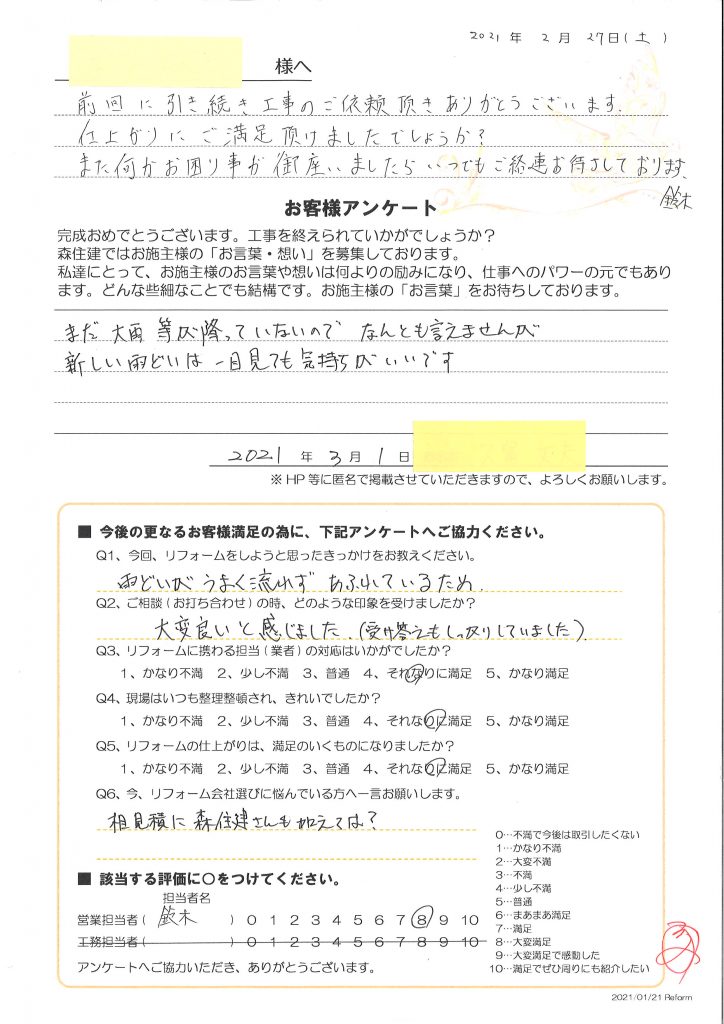 2021 年 2 月 27日(土)
様へ
前回に引き続き工事のご依頼頂きありがとうございます.
仕上がりにご満足頂けましたでしょうか?
また何かお困り事が御座いましたらいつでもご連絡お待ちしております.
鈴木
お客様アンケート
完成おめでとうございます。工事を終えられていかがでしょうか?
森住建ではお施主様の「お言葉・想い」を募集しております。
私達にとって、お施主様のお言葉や想いは何よりの励みになり、仕事へのパワーの元でもあり
ます。どんな些細なことでも結構です。お施主様の「お言葉」をお待ちしております。
まだ 大雨 等が降っていないので なんとも言えませんが
新しい雨どいは 一目見ても 気持ちがいいです
2021 年 3 月 1 日
※HP 等に匿名で掲載させていただきますので、よろしくお願いします。
■ 今後の更なるお客様満足の為に、下記アンケートへご協力ください。
Q1、今回、リフォームをしようと思ったきっかけをお教えください。
雨どいが うまく流れず あふれているため.
Q2、ご相談(お打ち合わせ)の時、どのような印象を受けましたか?
大変良いと感じました.(受け答えもしっかりしていました).
Q3、リフォームに携わる担当(業者)の対応はいかがでしたか?
1、かなり不満 2、少し不満 3、普通 4、それなりに満足 5、かなり満足
Q4、現場はいつも整理整頓され、きれいでしたか?
1、かなり不満 2、少し不満 3、普通 4、それなりに満足 5、かなり満足
Q5、リフォームの仕上がりは、満足のいくものになりましたか?
1、かなり不満 2、少し不満 3、普通 4、それなりに満足 5、かなり満足
Q6、今、リフォーム会社選びに悩んでいる方へ一言お願いします。
相見積に 森住建さんも加えては?
■ 該当する評価に○をつけてください。
担当者名
営業担当者( 鈴木 ) 0 1 2 3 4 5 6 7 8 9 10
工務担当者( ) 0 1 2 3 4 5 6 7 8 9 10
アンケートへご協力いただき、ありがとうございます。
0…不満で今後は取引したくない
1…かなり不満
2…大変不満
3…不満
4…少し不満
5…普通
6…まあまあ満足
7…満足
8…大変満足
9…大変満足で感動した
10…満足でぜひ周りにも紹介したい
2021/01/21 Reform